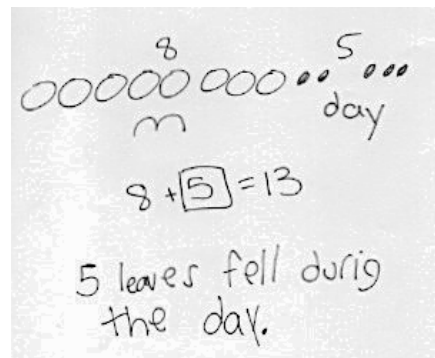 8 5
m day
8 + 5 = 13
5 leaves fell durig
the day.